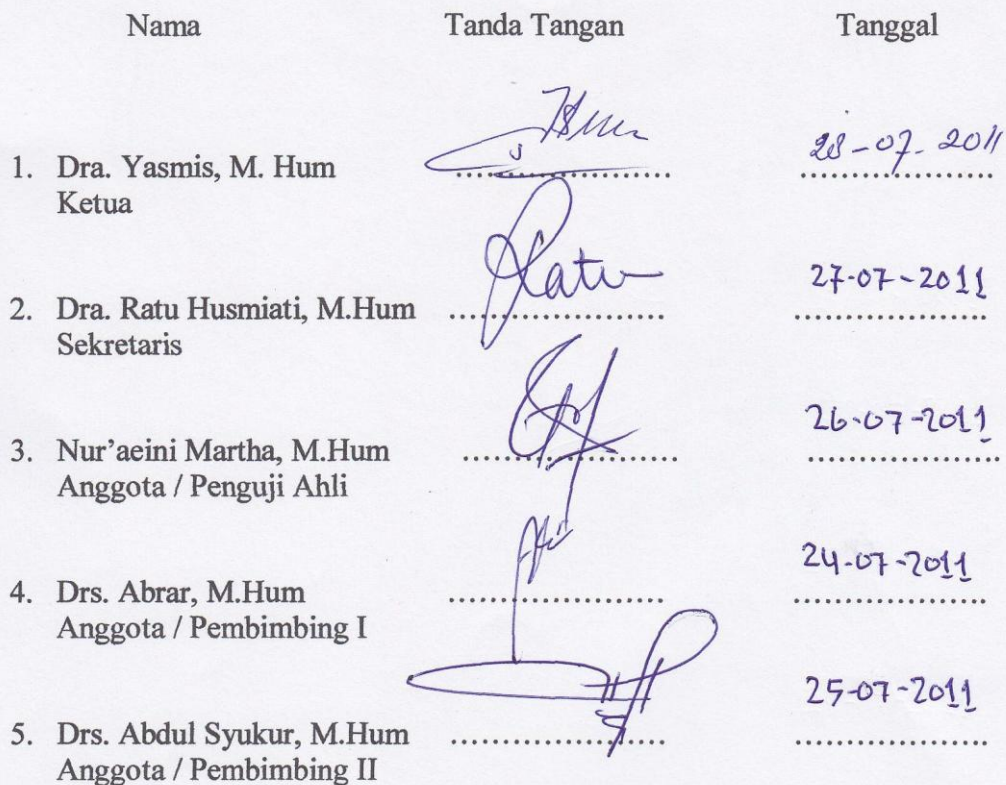 Nama Tanda Tangan Tanggal
28-07-2011
1. Dra. Yasmis, M. Hum .................... ...................
Ketua
Ratu 27-07-2011
2. Dra. Ratu Husmiati, M.Hum .................... ...................
Sekretaris
26-07-2011
3. Nur'aeini Martha, M.Hum .................... ...................
Anggota / Penguji Ahli
24-07-2011
4. Drs. Abrar, M.Hum .................... ...................
Anggota / Pembimbing I
25-07-2011
5. Drs. Abdul Syukur, M.Hum .................... ...................
Anggota / Pembimbing II